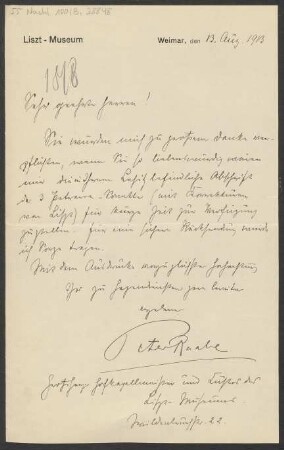 Liszt-Museum
Weimar, den 13. Aug. 1913
18/8
Sehr geehrte Herren!
Sie würden mich zu grossem Danke ver-
pflichten, wenn Sie so liebenswürdig wären
mir die in Ihrem Besitz befindliche Abschrift
der 3 Petrarca-Sonette (mit Korrekturen
von Liszt) für kurze Zeit zur Verfügung
zu stellen. Für sichere Rücksendung werde
ich Sorge tragen.
Mit dem Ausdrucke vorzüglichster Hochachtung
Ihr zu Gegendiensten gern bereiter
ergebener
Peter Raabe
Hofkapellmeister und Kustos des
Liszt-Museums
22.